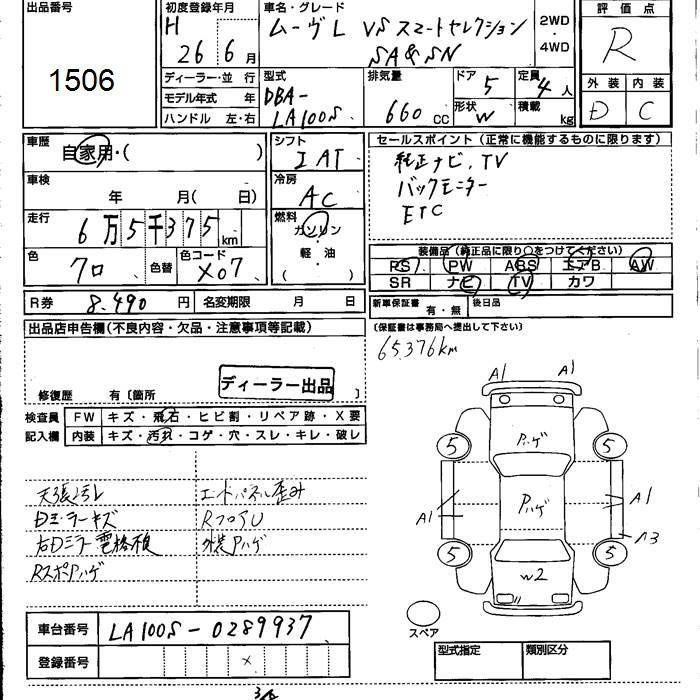 出品番号
1506
初度登録年月
H
26 6 月
車名・グレード
ムーヴL VS スマートセレクション
SA&SN
2WD
・
4WD
評価点
R
外装 内装
D C
ディーラー・並行
モデル年式 年
ハンドル 左・右
型式
DBA-
LA100S
排気量
660 cc
ドア 5
形状 W
定員 4 人
積載 kg
車歴
自家用・( )
車検
年 月( 日)
走行
6万5千375 km
色
クロ 色替
色コード
X07
シフト
I AT
冷房
AC
燃料
ガソリン
軽・油
( )
セールスポイント(正常に機能するものに限ります)
純正ナビ、TV
バックモニター
ETC
装備品(純正品に限り○をつけてください)
PS PW ABS エアB AW
SR ナビ TV カワ
R券 8,490 円 名変期限 月 日
新車保証書 有・無 後日品
(保証書は事務局へ提出して下さい)
出品店申告欄(不良内容・欠品・注意事項等記載)
65,376km
ディーラー出品
修復歴 有〔箇所 〕
検査員 FW キズ・飛石・ヒビ割・リペア跡・X要
記入欄 内装 キズ・汚れ・コゲ・穴・スレ・キレ・破レ
天張汚レ
Dミラーキズ
右Dミラー電格不良
RスポPハゲ
エンドパネル歪み
RフロアU
外装Pハゲ
A1 A1
5 5
Pハゲ
Pハゲ
A1 A1
A3
5 5
W2
スペア
車台番号 LA100S-0289937
登録番号 ×
型式指定 類別区分